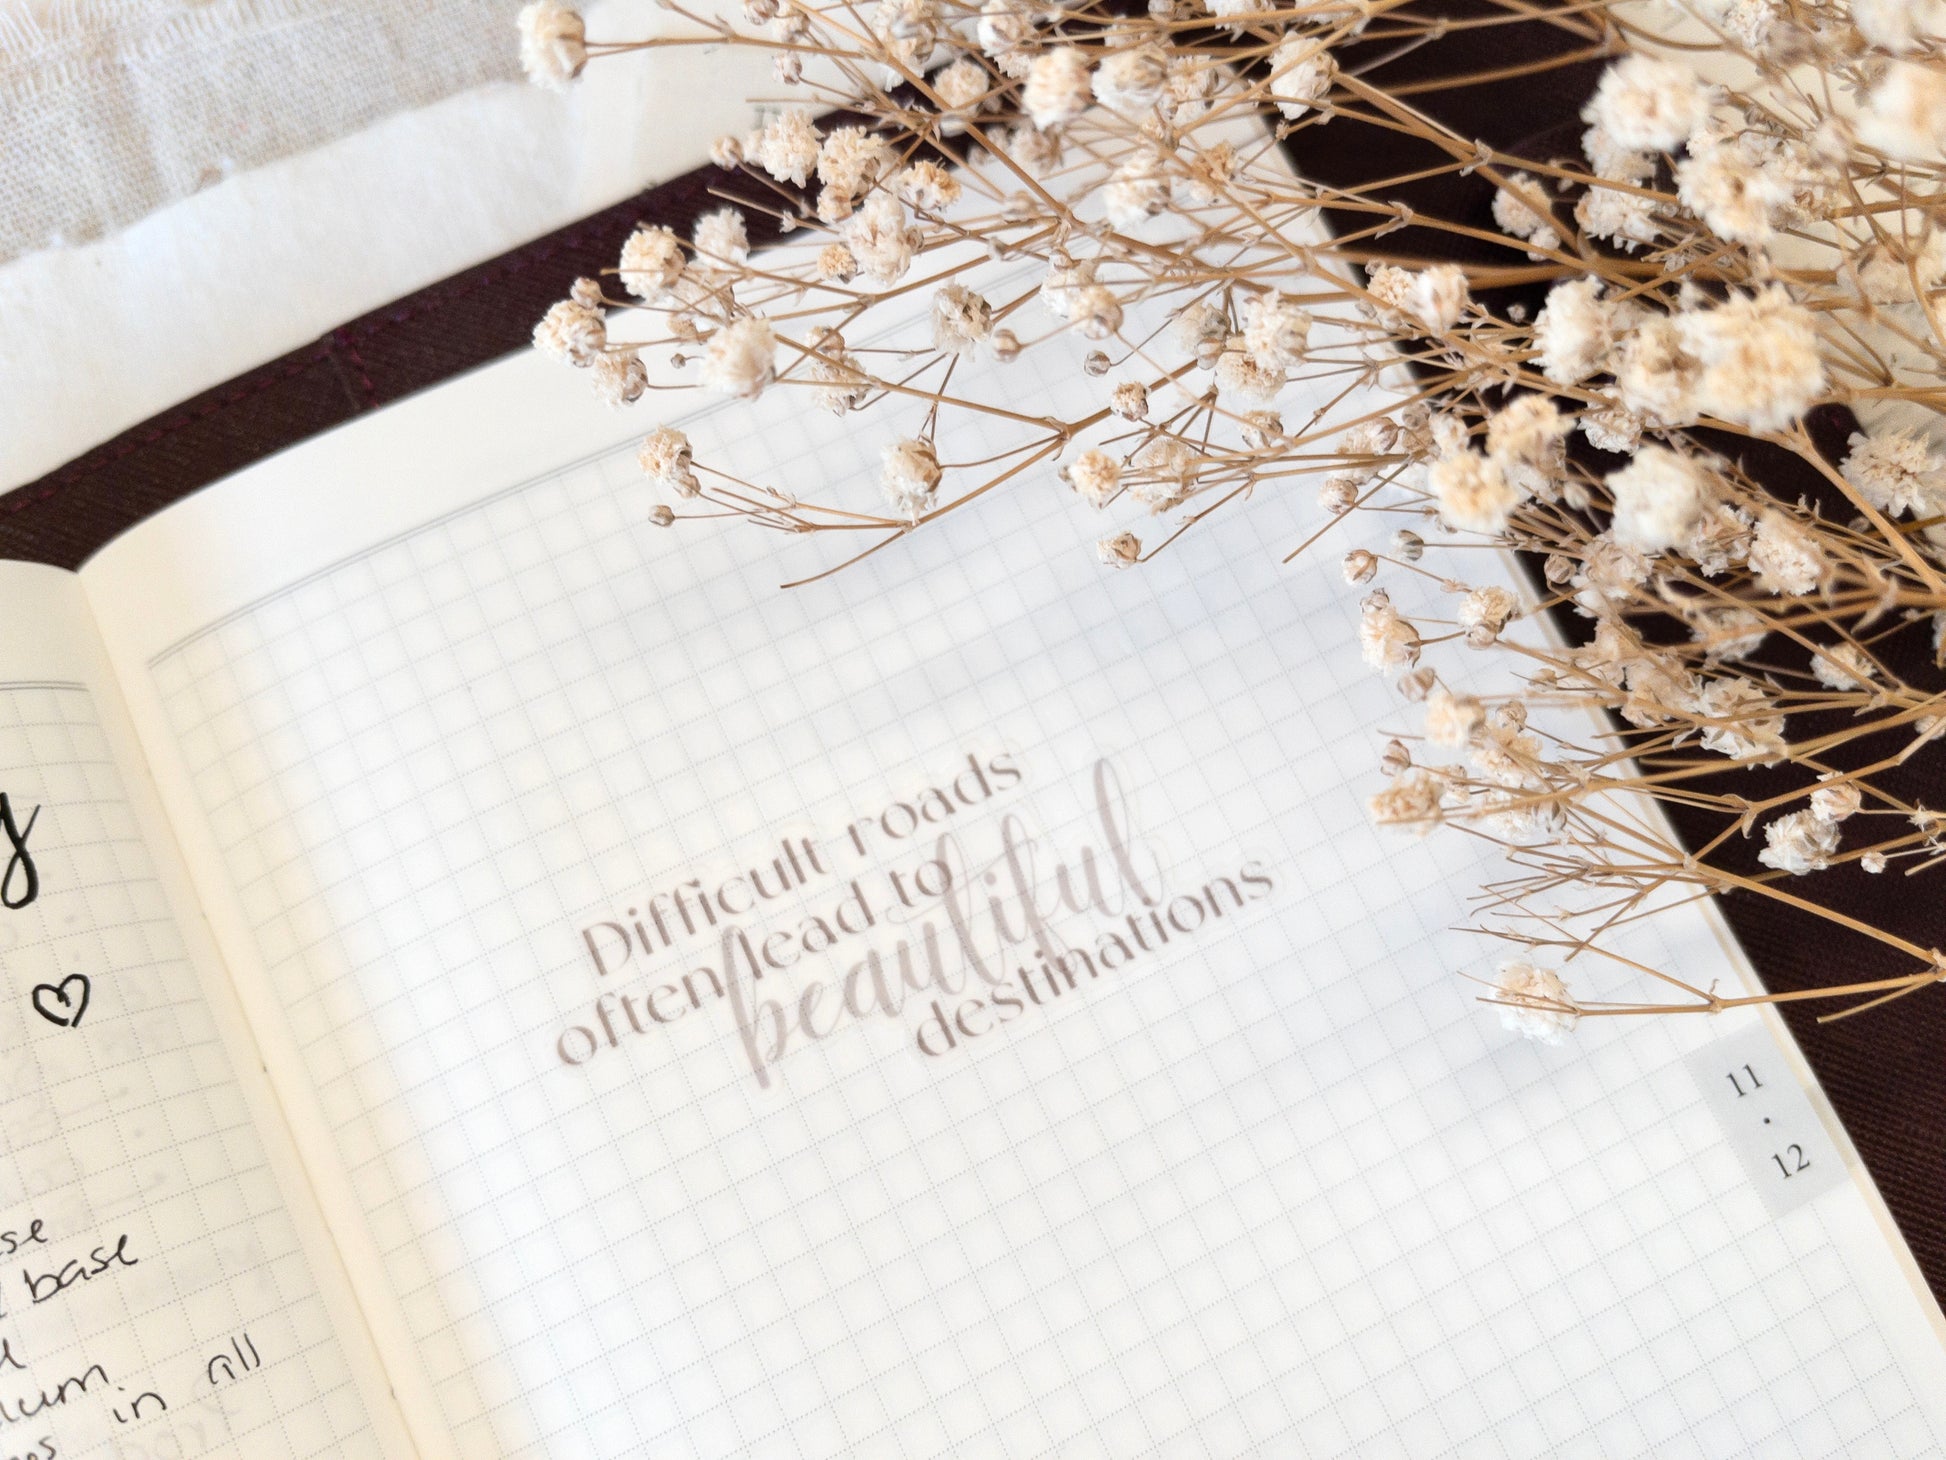 Difficult roads
often lead to
beautiful
destinations
11
•
12
base
in all